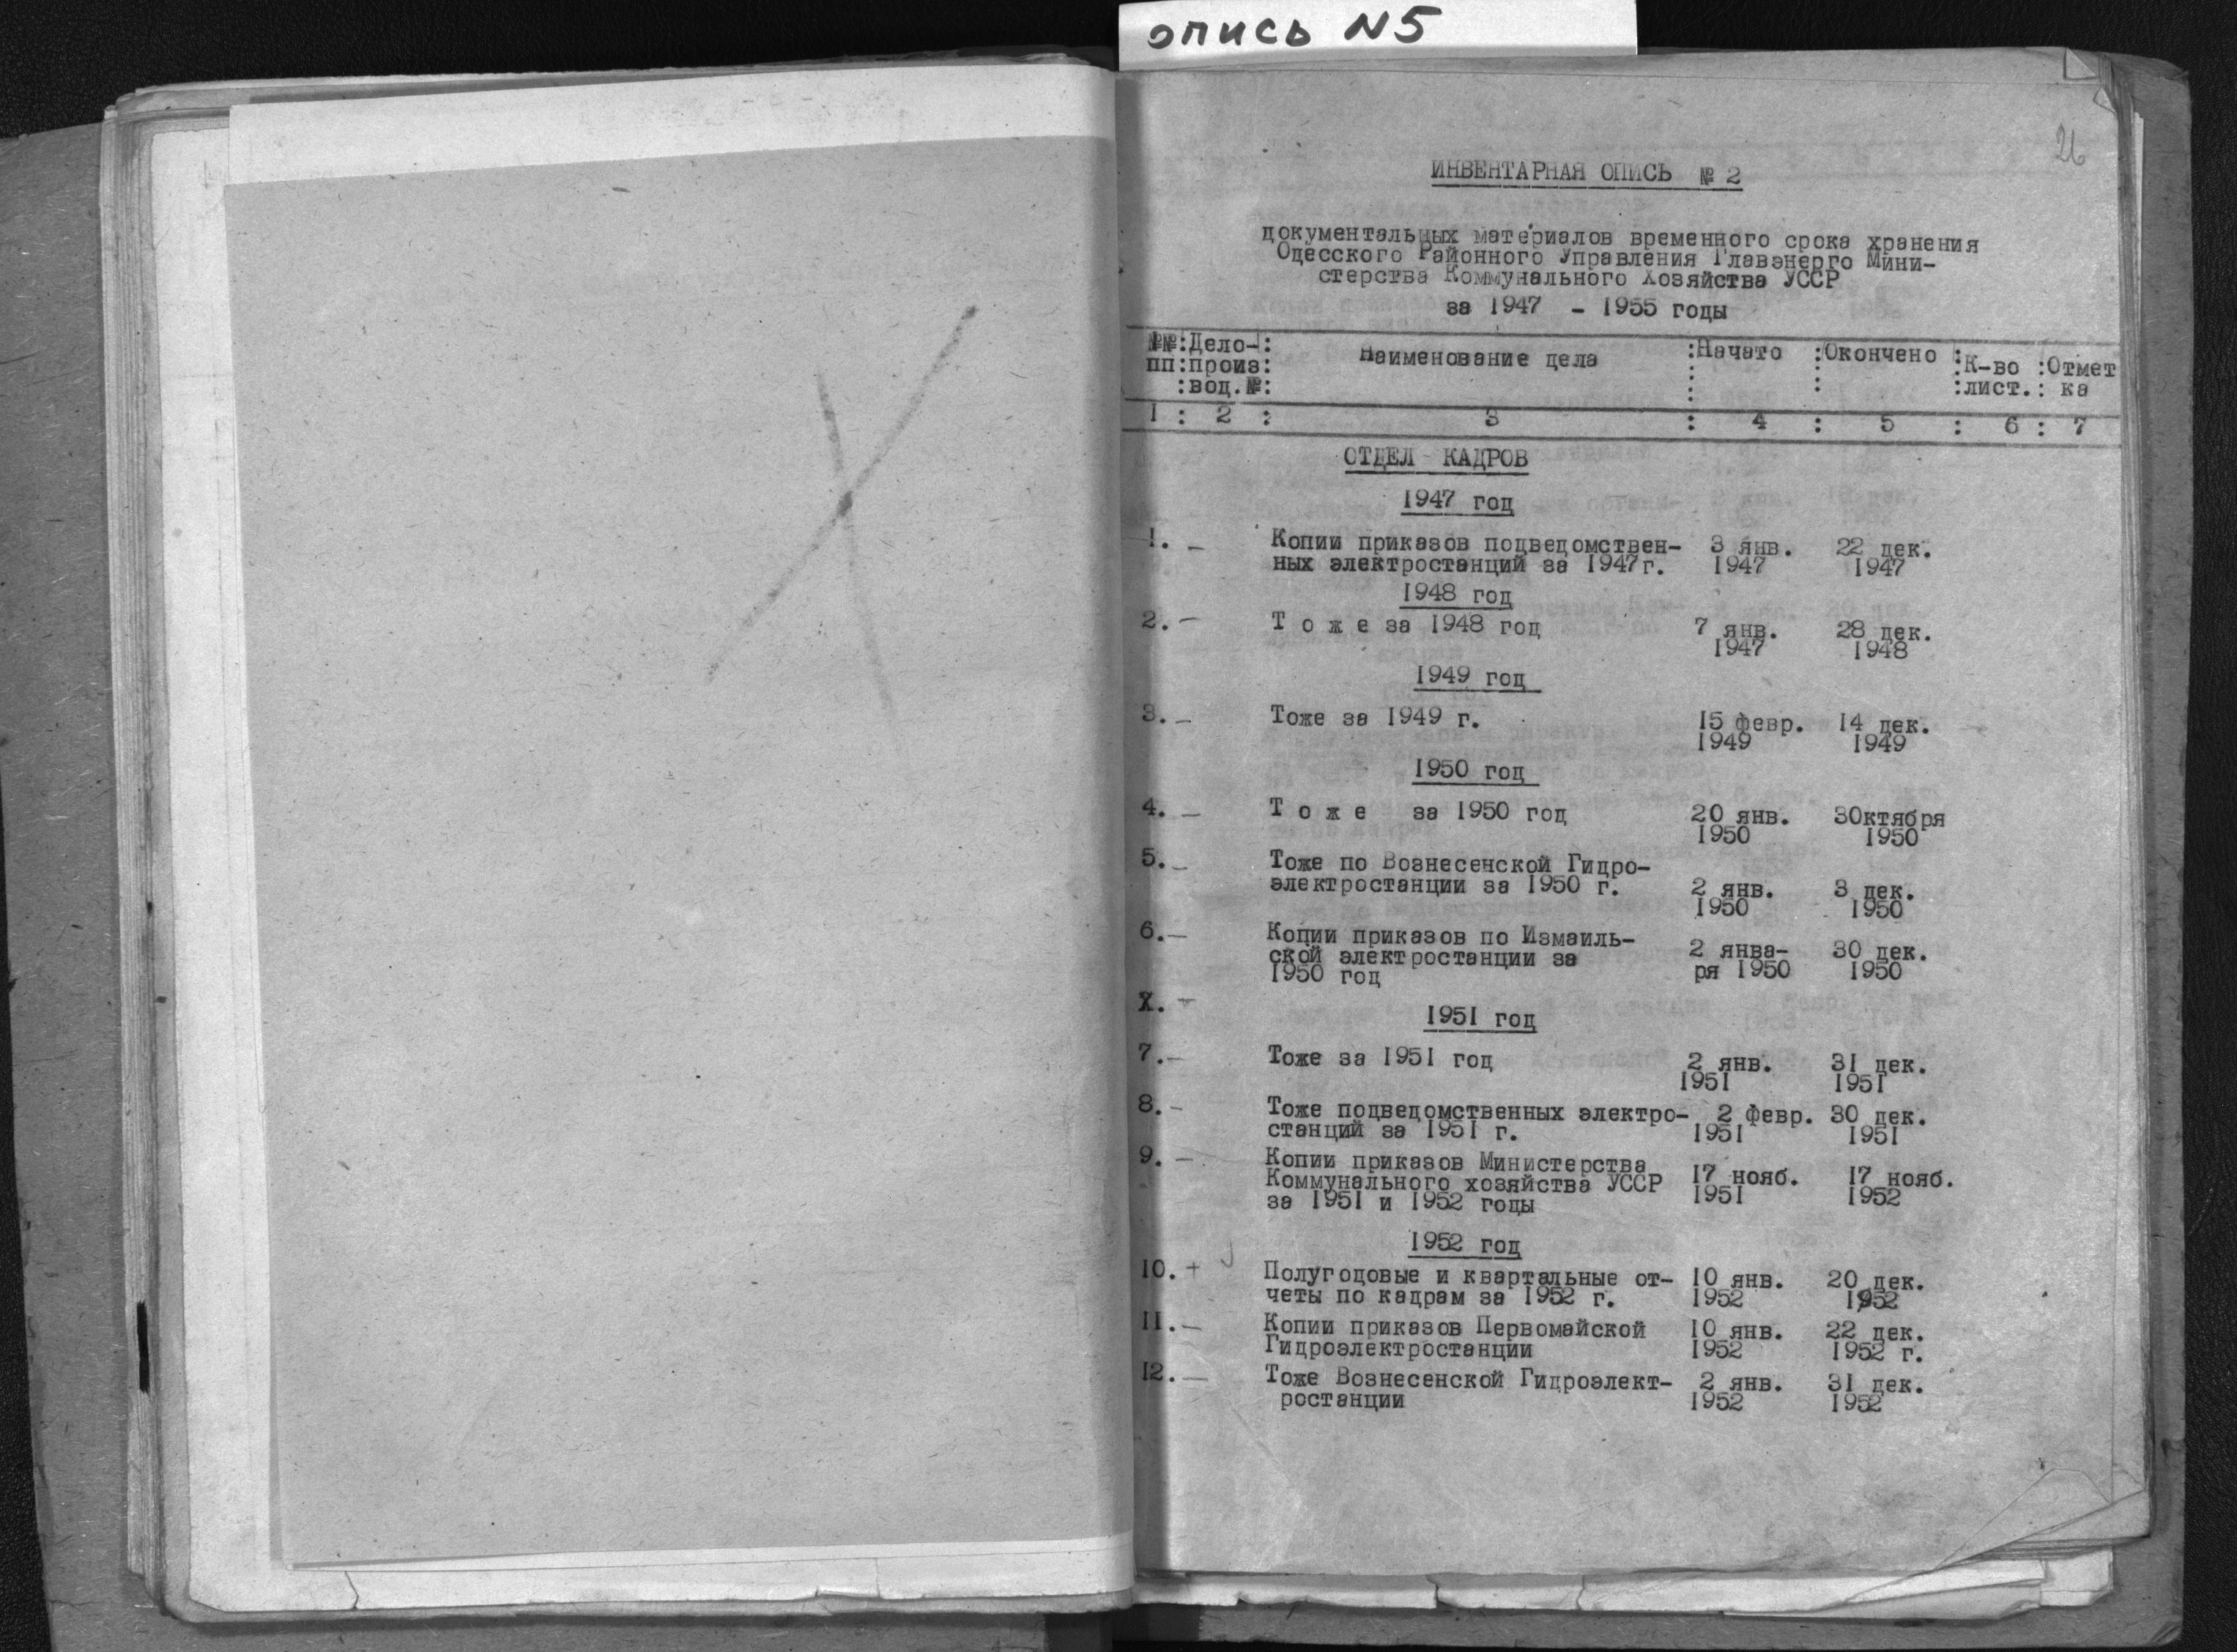 опись N5
26
ИНВЕНТАРНАЯ ОПИСЬ № 2
документальных материалов временного срока хранения
Одесского Районного Управления Главэнерго Мини-
стерства Коммунального Хозяйства УССР
за 1947 - 1955 годы
№№:Дело-: Наименование дела :Начато :Окончено :К-во :Отмет
пп:произ: :лист.: ка
:вод.№:
1 : 2 : 3 : 4 : 5 : 6 : 7
ОТДЕЛ КАДРОВ
1947 год
1. - Копии приказов подведомствен- 3 янв. 22 дек.
ных электростанций за 1947г. 1947 1947
1948 год
2. - Т о ж е за 1948 год 7 янв. 28 дек.
1947 1948
1949 год
3. - Тоже за 1949 г. 15 февр. 14 дек.
1949 1949
1950 год
4. - Т о ж е за 1950 год 20 янв. 30ктября
1950 1950
5. - Тоже по Вознесенской Гидро-
электростанции за 1950 г. 2 янв. 3 дек.
1950 1950
6. - Копии приказов по Измаиль- 2 янва- 30 дек.
ской электростанции за ря 1950 1950
1950 год
X. -
1951 год
7. - Тоже за 1951 год 2 янв. 31 дек.
1951 1951
8. - Тоже подведомственных электро- 2 февр. 30 дек.
станций за 1951 г. 1951 1951
9. - Копии приказов Министерства 17 нояб. 17 нояб.
Коммунального хозяйства УССР 1951 1952
за 1951 и 1952 годы
1952 год
10. + Полугодовые и квартальные от- 10 янв. 20 дек.
четы по кадрам за 1952 г. 1952 1952
11. - Копии приказов Первомайской 10 янв. 22 дек.
Гидроэлектростанции 1952 1952 г.
12. - Тоже Вознесенской Гидроэлект- 2 янв. 31 дек.
ростанции 1952 1952